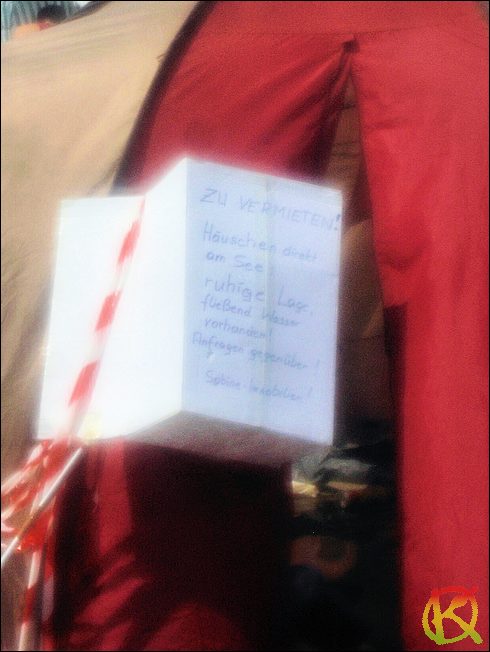 ZU VERMIETEN!
Häuschen direkt
am See,
ruhige Lage,
fließend Wasser
vorhanden!
Anfragen gegenüber!
Sabine-Immobilien!